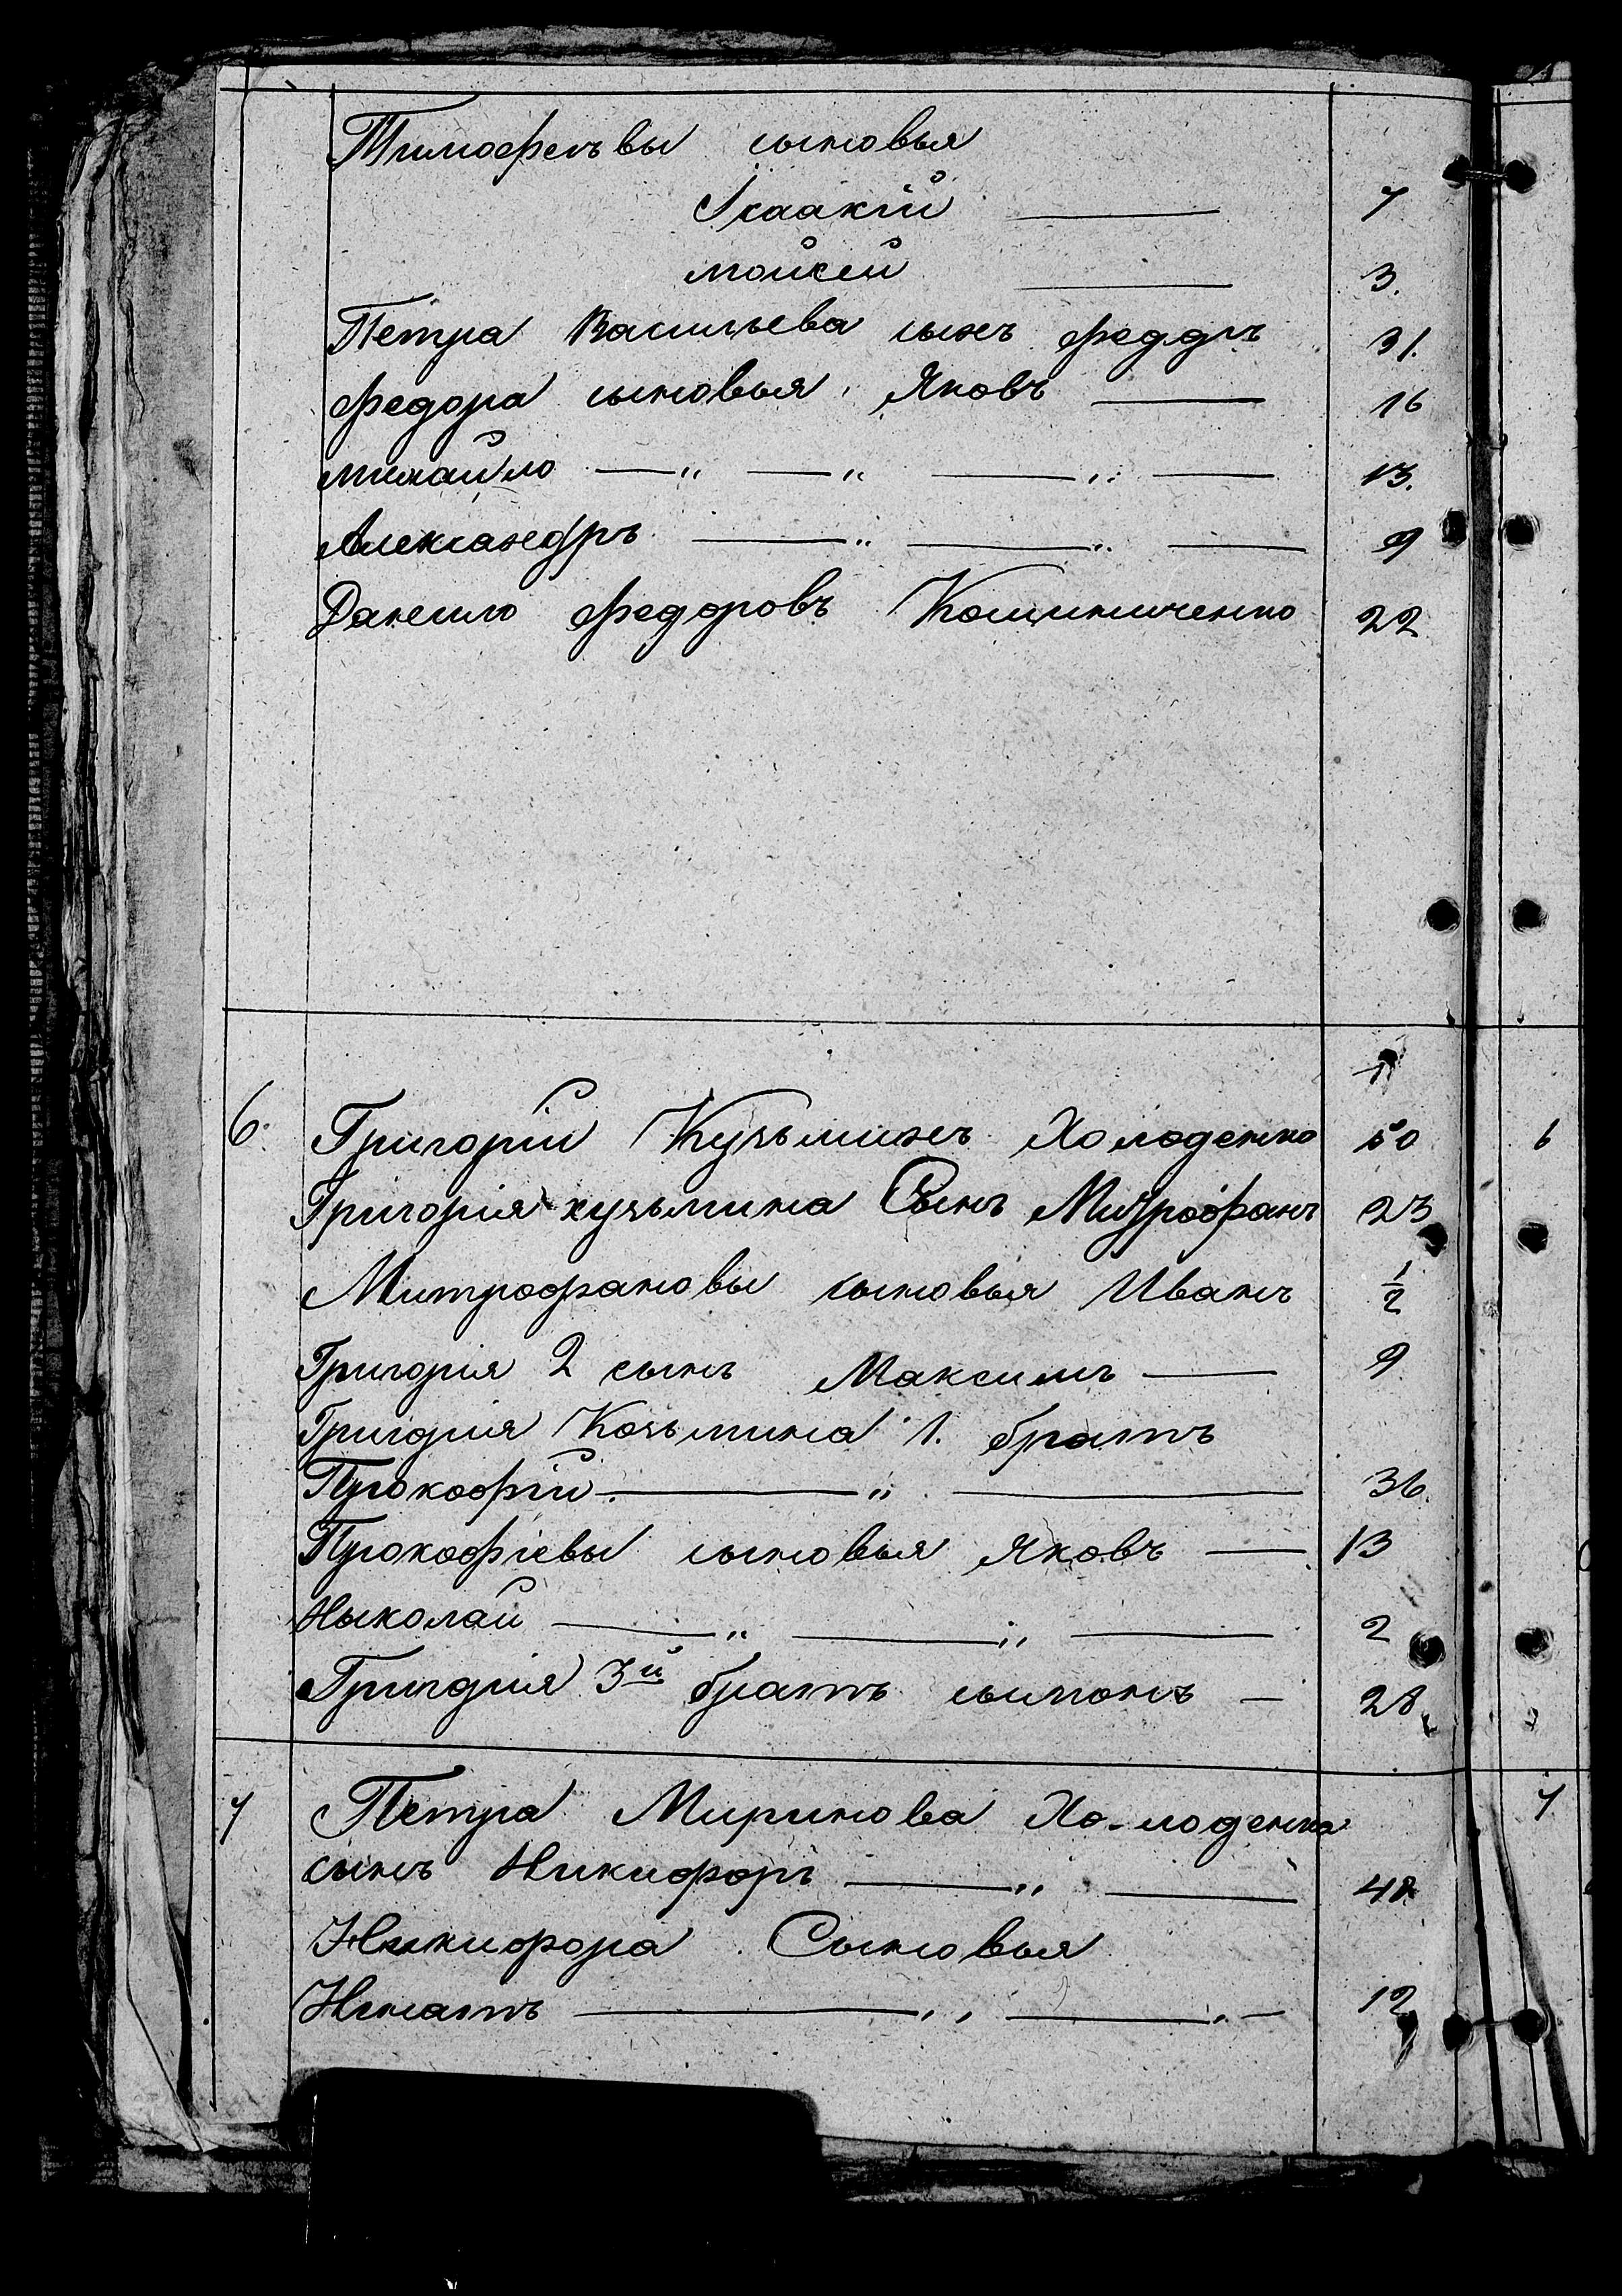 Тимофеевы сыновья
Ісаакій 7
Мойсей 3.
Петра Васильева сынъ Федоръ 31.
Федора сыновья, Яковъ 16
Михайло — „ — „ — „ — 13.
Александръ — „ — „ — 9
Данило Федоровъ 22
6. Григорій Кузьминъ Холоденко 50 6
Григорія Кузьмина Сынъ Митрофанъ 23
Митрофановы сыновья Иванъ 1/2
Григорія 2 сынъ Максимъ — 9
Григорія Козьмина 1. братъ
Прокофій. — „ — 36.
Прокофіевы сыновья Яковъ — 13
Ныколай — „ — „ — 2
Григорія 3й братъ сымонъ — 28
7 Петра Миринова Холоденка 7
сынъ Никифоръ — „ — 48
Никифора Сыновья
Игнатъ — „ — „ — 12